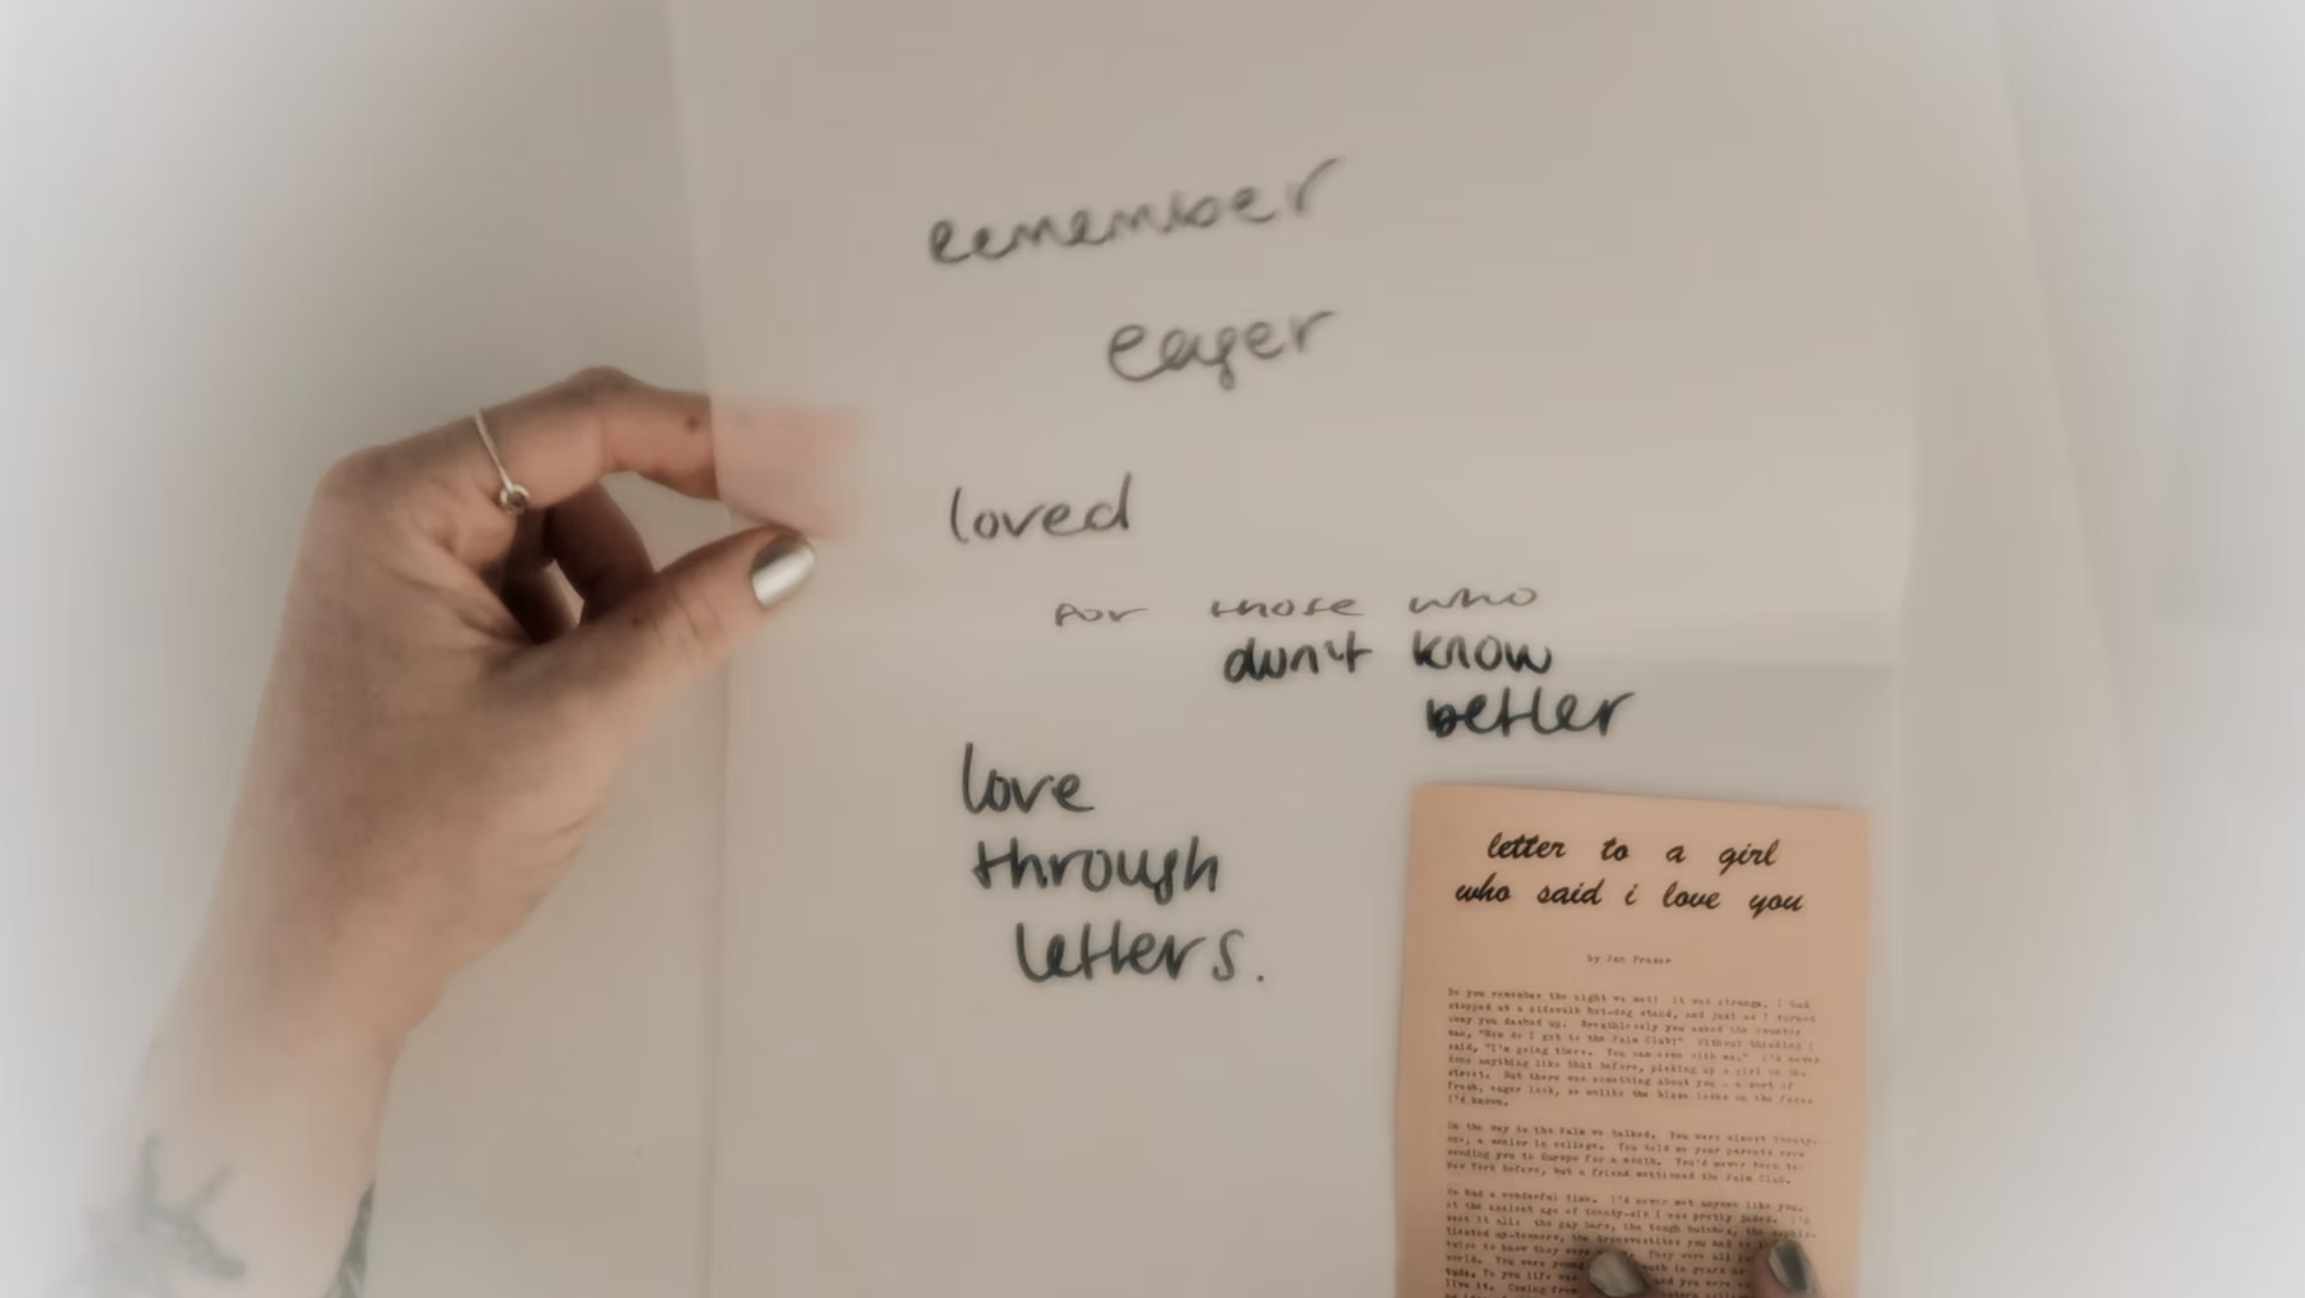 remember
eager
loved
for those who
don't know
better
love
through
letters.
letter to a girl
who said i love you
by Jan Fraser
Do you remember the night we met? It was strange. I had
stopped at a sidewalk hot-dog stand, and just as I turned
away you dashed up. Breathlessly you asked the counter
man, "How do I get to the Palm Club?" Without thinking I
said, "I'm going there. You can come with me." I'd never
done anything like that before, picking up a girl on the
street. But there was something about you - a sort of
fresh, eager look, so unlike the blase looks on the faces
I'd known.
On the way to the Palm we talked. You were almost twenty-
one, a senior in college. You told me your parents were
sending you to Europe for a month. You'd never been to
New York before, but a friend mentioned the Palm Club.
We had a wonderful time. I'd never met anyone like you.
At the ancient age of twenty-six I was pretty jaded. I'd
seen it all: the gay bars, the tough butches, the sophis-
ticated up-towners, the transvestites you had to look
twice to know they were They were all
world. You were young in years as
tude. To you life was and you were
live it. Coming from